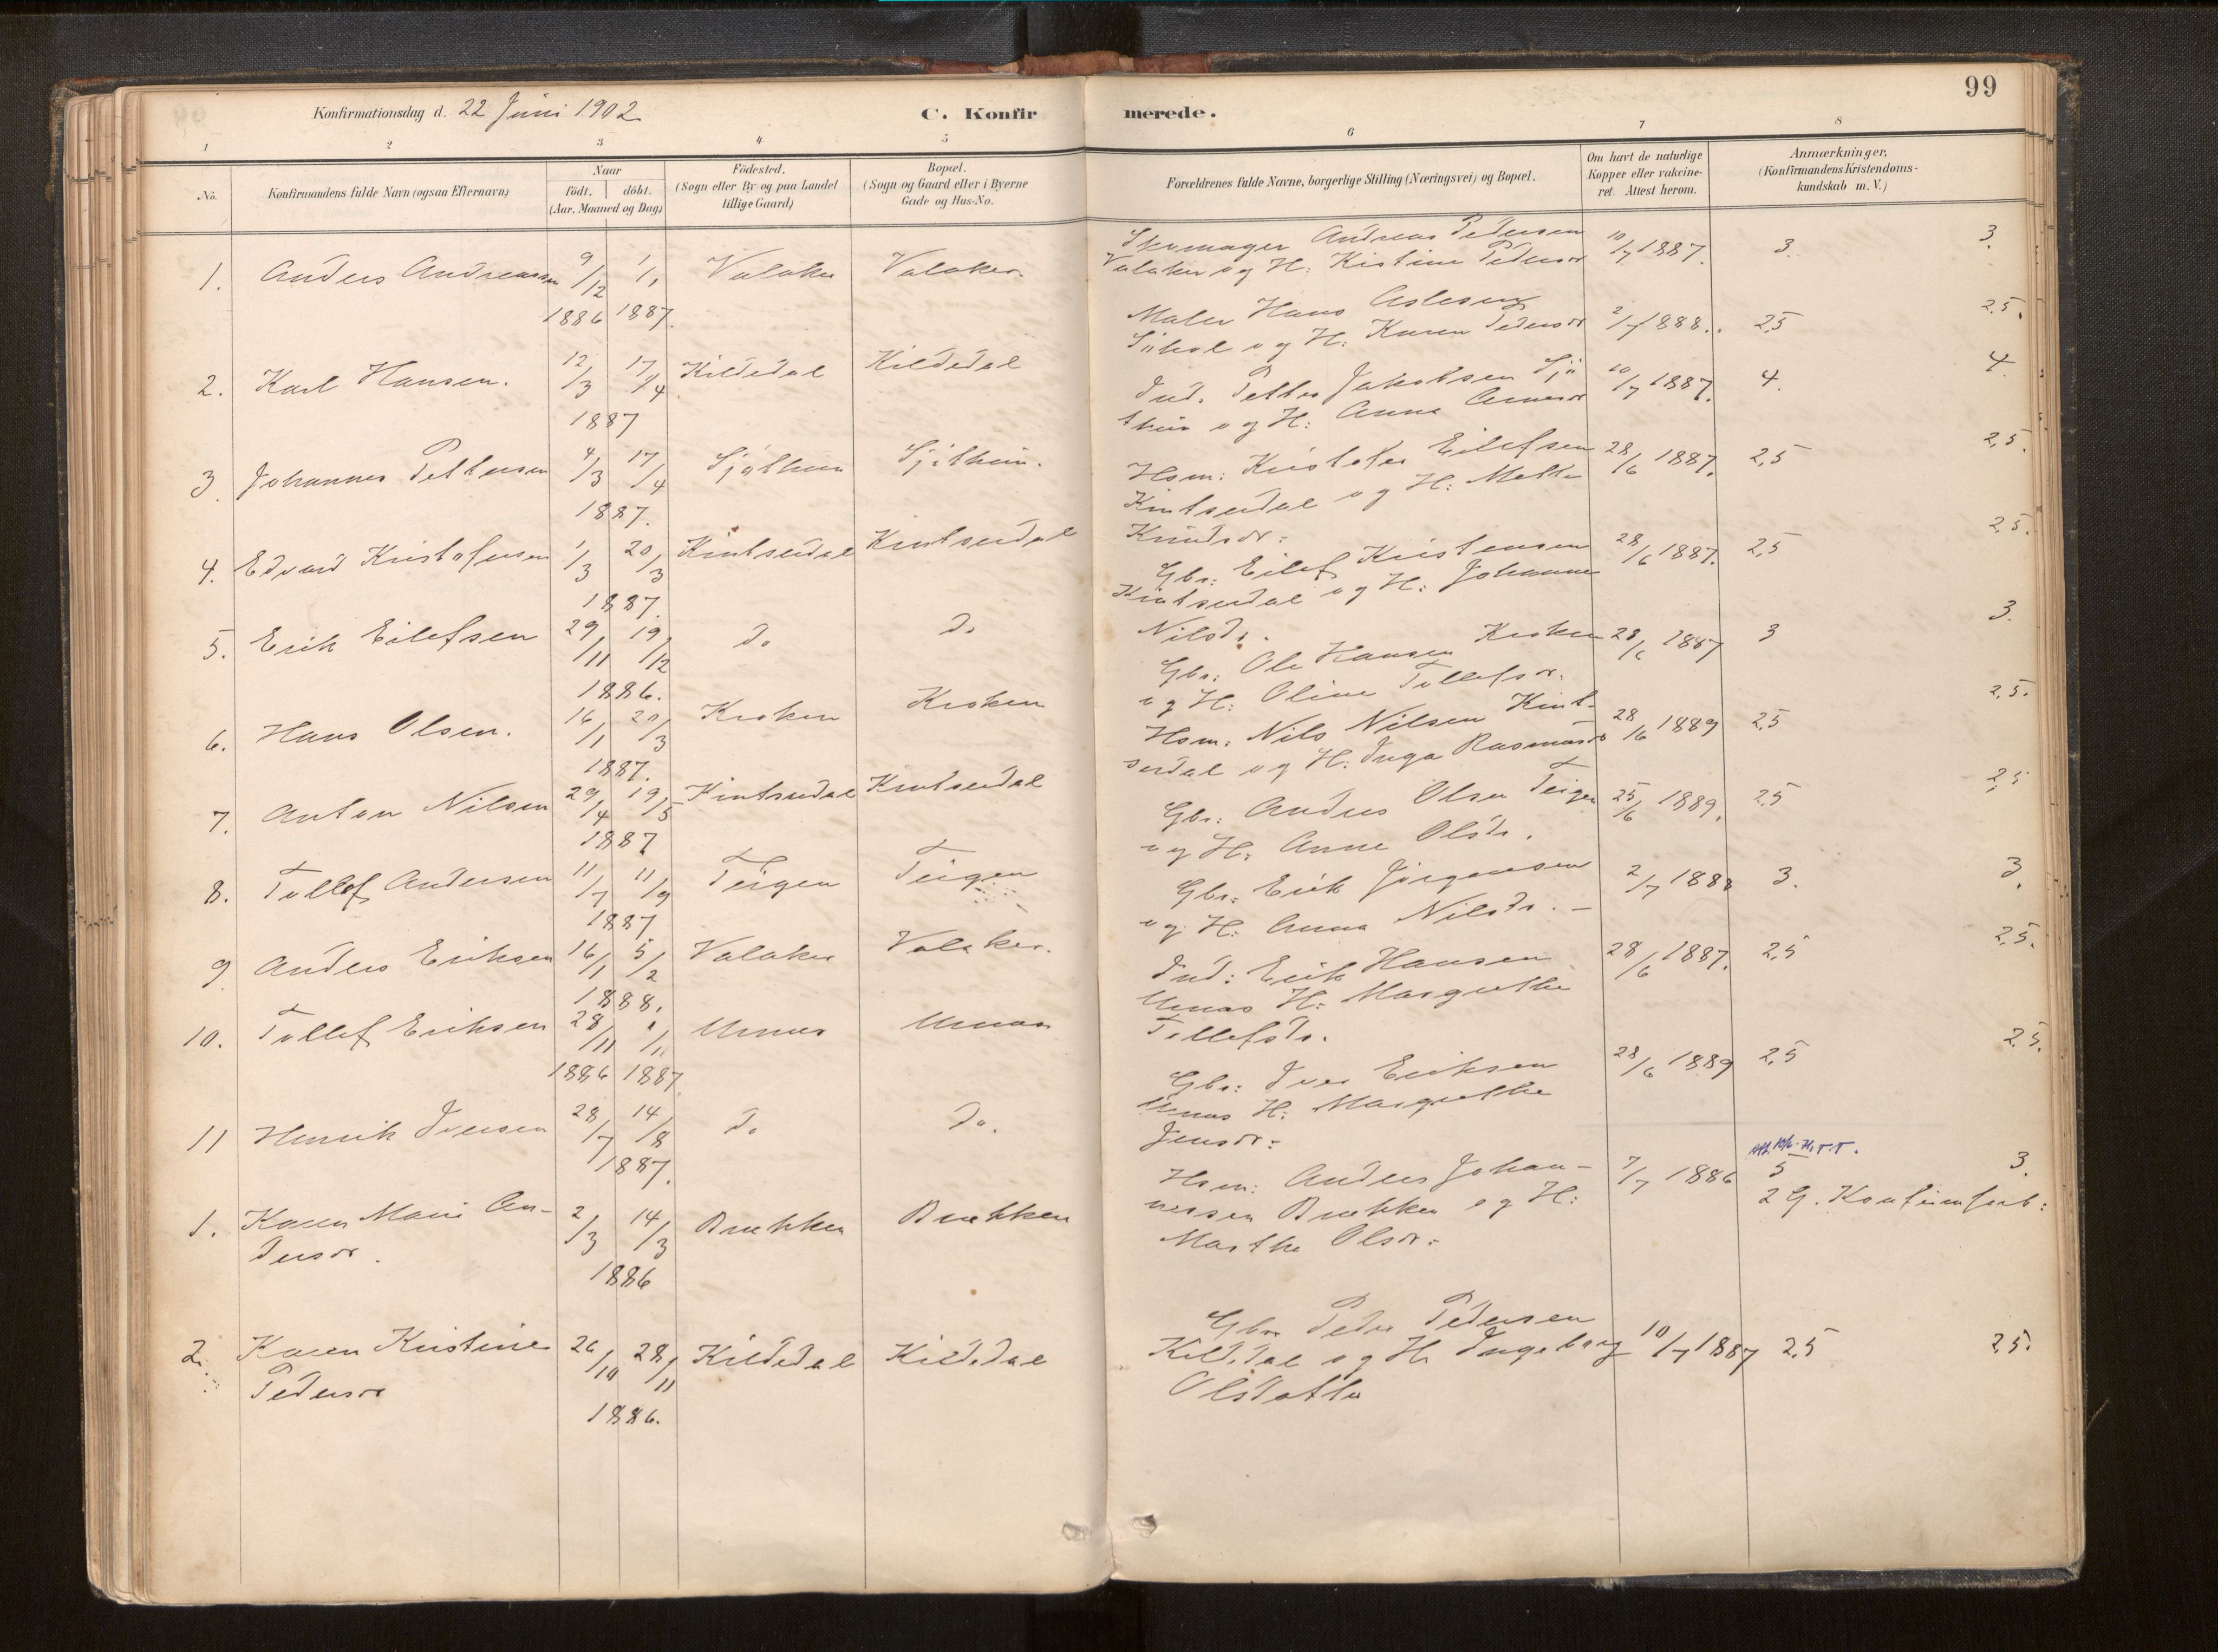 99
Konfirmationsdag d. 22 Juni 1902
C. Konfirmerede.
1 2 3 4 5 6 7 8
No.
Konfirmandens fulde Navn (ogsaa Efternavn)
Naar
födt. döbt.
(Aar, Maaned og Dag)
Födested.
(Sogn eller By og paa Landet
tillige Gaard)
Bopæl.
(Sogn og Gaard eller i Byerne
Gade og Hus-No.
Forældrenes fulde Navne, borgerlige Stilling (Næringsvei) og Bopæl.
Om havt de naturlige
Kopper eller vakcine-
ret. Attest herom.
Anmærkninger,
(Konfirmandens Kristendoms-
kundskab m. V.)
1. Anders Andreassen 9/12 1886 1/1 1887. Valaker Valaker
Skomager Andreas Pedersen
Valaker og H: Kistine Pedersdr 10/7 1887. 3. 3.
2. Karl Hansen. 12/3 17/4 1887 Kildedal Kildedal
Maler Hans Aslesen
og H: Karen Pedersdr 2/7 1888. 2,5 2,5.
3. Johannes Pettersen 4/3 17/4 1887. Sjøthun Sjøthun.
Ind. Petter Jakobsen Sjø
thun og H: Anna Arnesdr 10/7 1887. 4. 4.
4. Edvard Kristofersen 1/3 20/3 1887. Kintseidal Kintseidal
Hsm: Kristofer Eilefsen
Kintseidal og H: Mette
Knudsdr: 28/6 1887. 2,5 2,5.
5. Erik Eilefsen 29/11 19/12 1886. do do
Gbr: Eilef Kristensen
Kintseidal og H: Johanne
Nilsdr. 28/6 1887. 2,5 2,5.
6. Hans Olsen. 16/1 20/3 1887. Kroken Kroken
Gbr: Ole Hansen Kroken
og H: Oline Tollefsdr. 28/6 1887 3 3.
7. Anton Nilsen 29/4 19/5 1887 Kintseidal Kintseidal
Hsm: Nils Nilsen Kint-
seidal og H: Inga Rasmusdr 28/6 1889 2,5 2,5.
8. Tollef Andersen 11/7 11/9 1887 Teigen Teigen
Gbr: Anders Olsen Teigen
og H: Anne Olsdr. 25/6 1889. 2,5 2,5
9 Anders Eriksen 16/1 5/2 1888. Valaker Valaker.
Gbr: Erik Jörgensen
og H: Anna Nilsdr. - 2/7 1888 3. 3.
10. Tollef Eriksen 28/11 1886 1/1 1887 Urnes Urnes
Ind: Erik Hansen
Urnes H: Margrethe
Tollefsdr. 28/6 1887. 2,5 2,5.
11 Henrik Iversen 28/7 14/8 1887. do do.
Gbr: Iver Eriksen
Urnes H: Margrethe
Jensdr: 28/6 1889 2,5 2,5.
1. Karen Marie An-
dersdr. 2/3 14/3 1886 Brækken Brækken
Hsm: Anders Johan-
nessen Brækken og H:
Marthe Olsdr: 7/7 1886 5 3.
2 G. Konfirmforb:
2. Karen Kristine
Pedersdr 26/10 28/11 1886. Kildedal Kildedal
Gbr Peder Pedersen
Kildedal og H: Ingeborg 10/7 1887 2,5 2,5.
Olsdatter